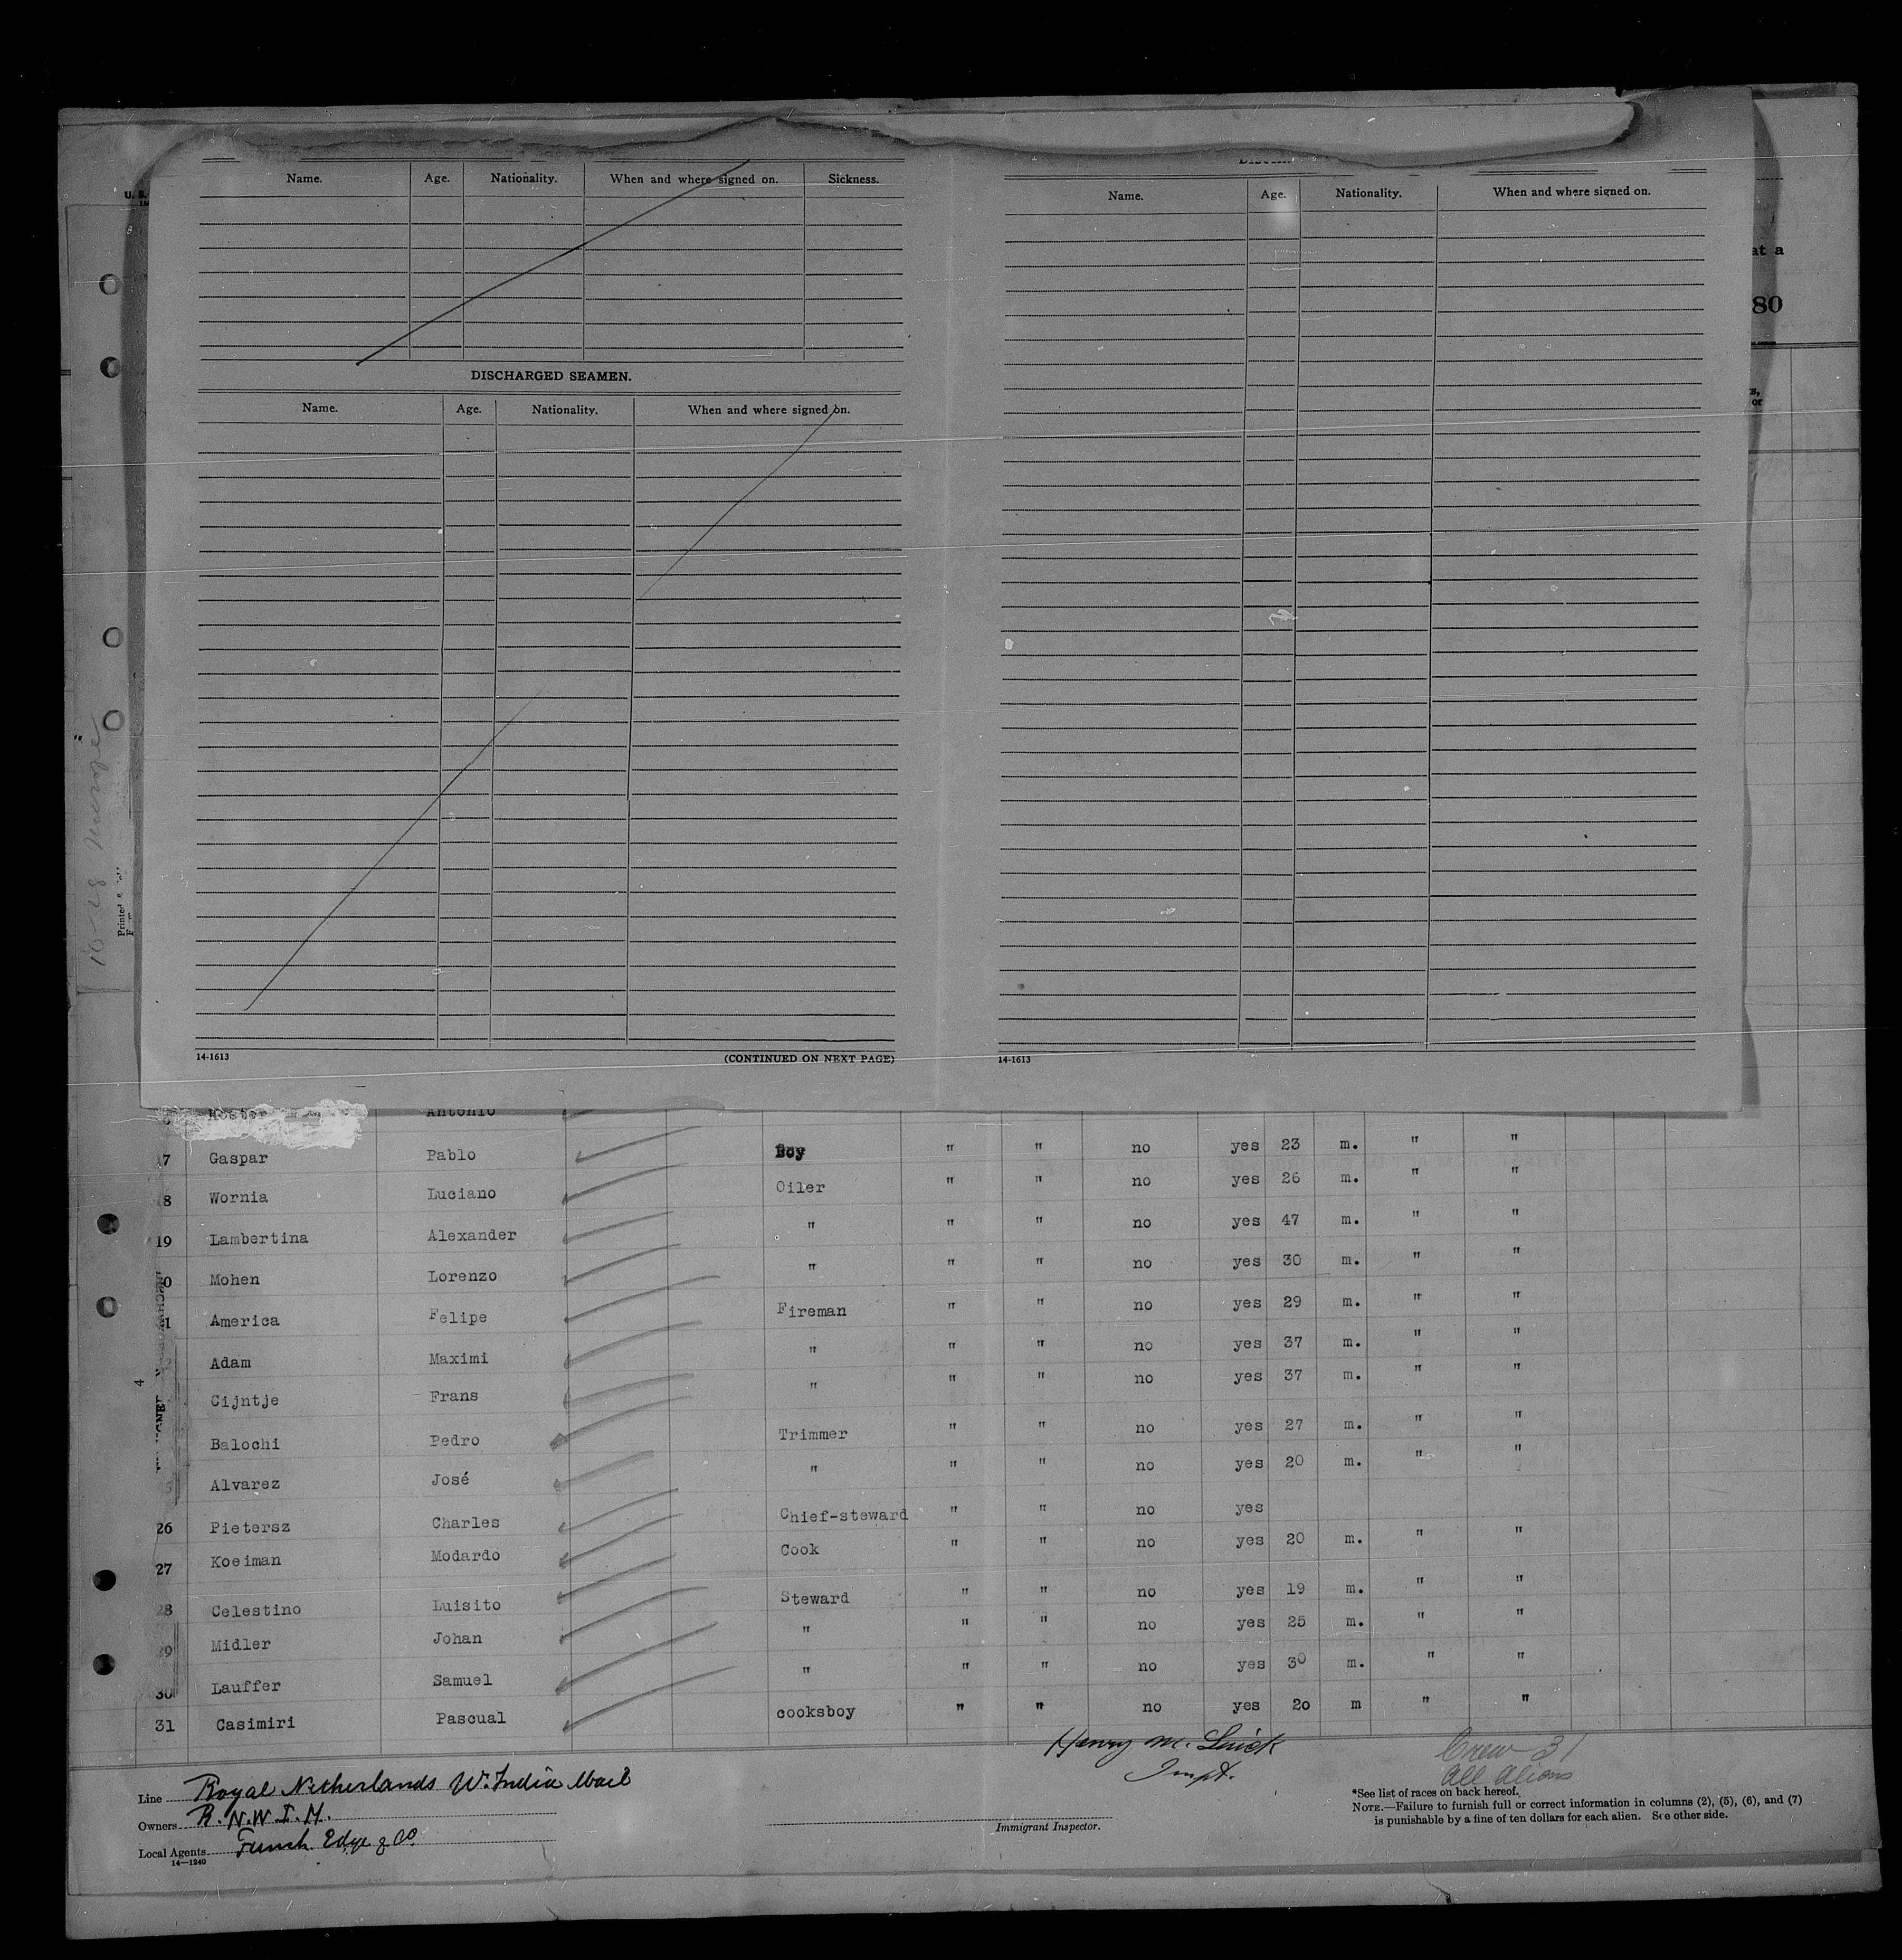 Name. Age. Nationality. When and where signed on. Sickness.
DISCHARGED SEAMEN.
Name. Age. Nationality. When and where signed on.
14-1613 (CONTINUED ON NEXT PAGE)
Name. Age. Nationality. When and where signed on.
14-1613
U. S.
at a
80
or
10-28
Printed
4
Antonio
17 Gaspar Pablo Boy " " no yes 23 m. " "
18 Wornia Luciano Oiler " " no yes 26 m. " "
19 Lambertina Alexander " " " no yes 47 m. " "
0 Mohen Lorenzo " " " no yes 30 m. " "
1 America Felipe Fireman " " no yes 29 m. " "
Adam Maximi " " " no yes 37 m. " "
Cijntje Frans " " " no yes 37 m. " "
Balochi Pedro Trimmer " " no yes 27 m. " "
Alvarez José " " " no yes 20 m. " "
26 Pietersz Charles Chief-steward " " no yes
27 Koeiman Modardo Cook " " no yes 20 m. " "
28 Celestino Luisito Steward " " no yes 19 m. " "
29 Midler Johan " " " no yes 25 m. " "
30 Lauffer Samuel " " " no yes 30 m. " "
31 Casimiri Pascual cooksboy " " no yes 20 m " "
Line Royal Netherlands W. India Mail
Owners R.N.W.I.M.
Local Agents Funch Edye & Co.
14-1240
Henry M.
Inspt.
Immigrant Inspector.
Crew 31
all aliens
*See list of races on back hereof.
NOTE.—Failure to furnish full or correct information in columns (2), (5), (6), and (7)
is punishable by a fine of ten dollars for each alien. See other side.